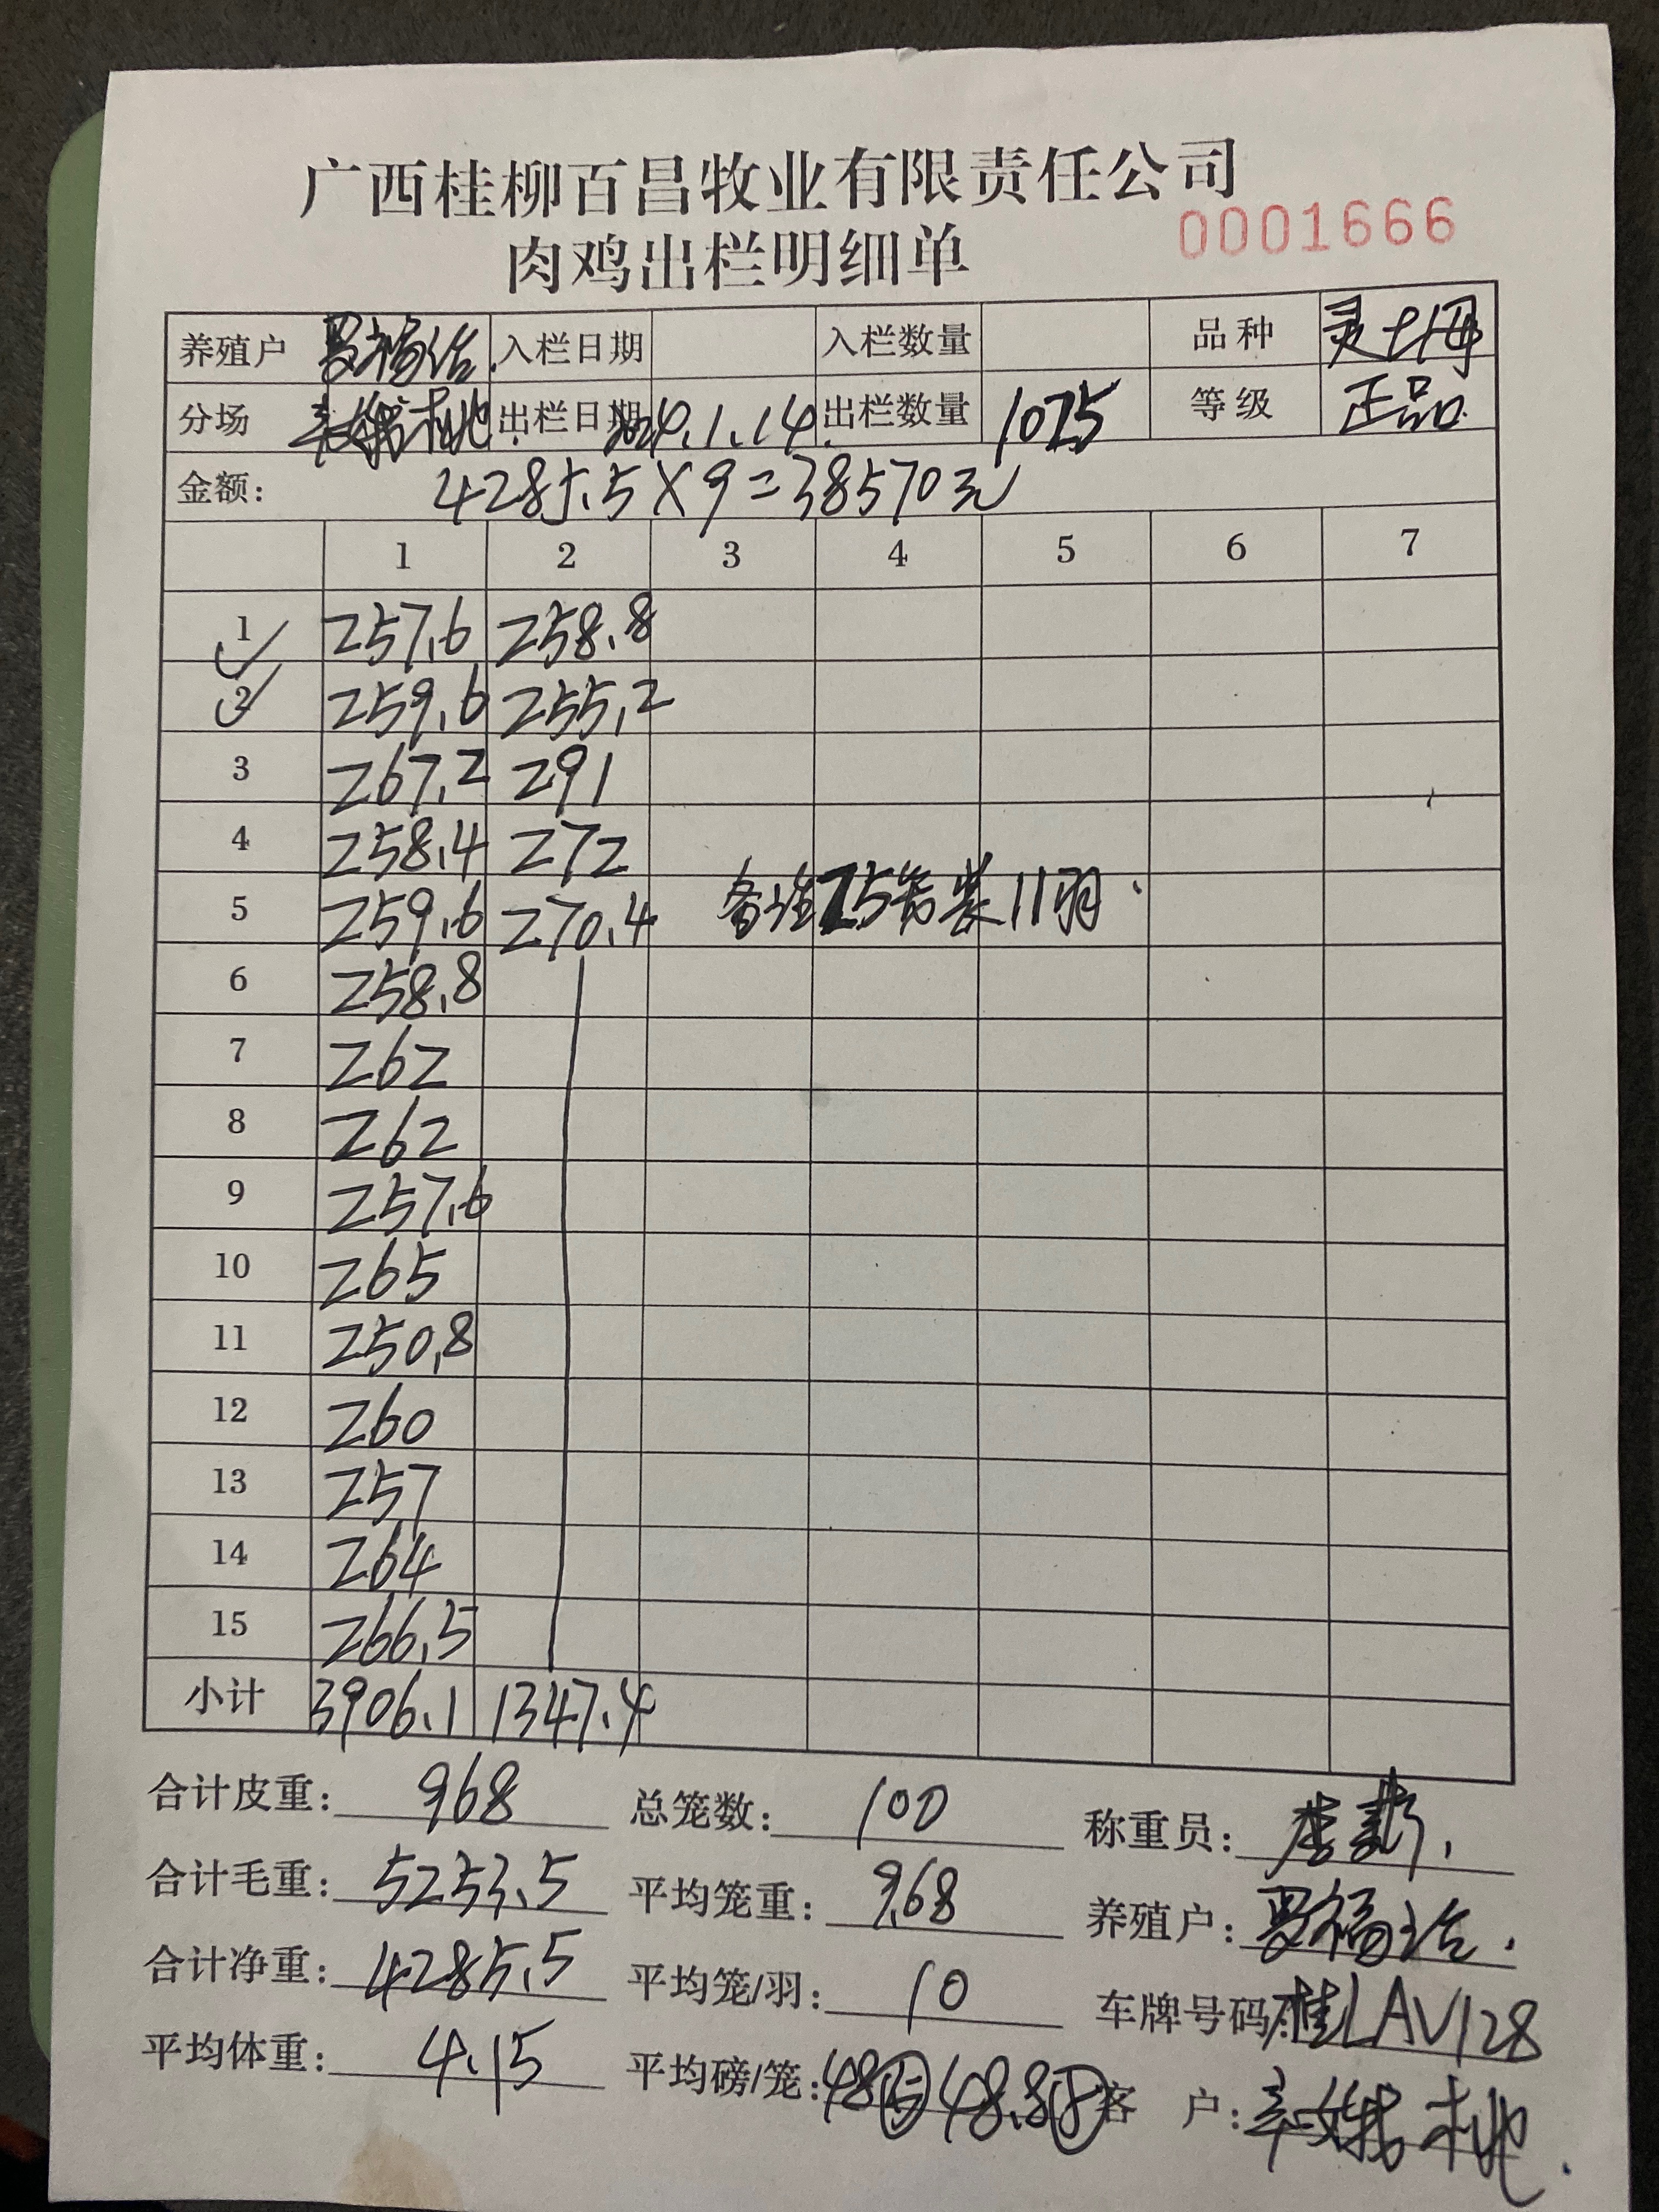 广西桂柳百昌牧业有限责任公司
肉鸡出栏明细单
0001666
养殖户 入栏日期 入栏数量 品种 灵土母
分场 本地 出栏日期 2024.1.14. 出栏数量 1025 等级 正品
金额: 4285.5×9=38570元
1 2 3 4 5 6 7
1 257.6 258.8
2 259.6 255.2
3 267.2 291
4 258.4 272
5 259.6 270.4 备注25笼装11羽.
6 258.8
7 262
8 262
9 257.6
10 265
11 250.8
12 260
13 257
14 264
15 266.5
小计 3906.1 1347.4
合计皮重: 968 总笼数: 100 称重员: 李
合计毛重: 5253.5 平均笼重: 9.68 养殖户:
合计净重: 4285.5 平均笼/羽: 10 车牌号码: 桂LAV128
平均体重: 4.15 平均磅/笼: 48⑤ 48.8⑧ 客 户: 本地.